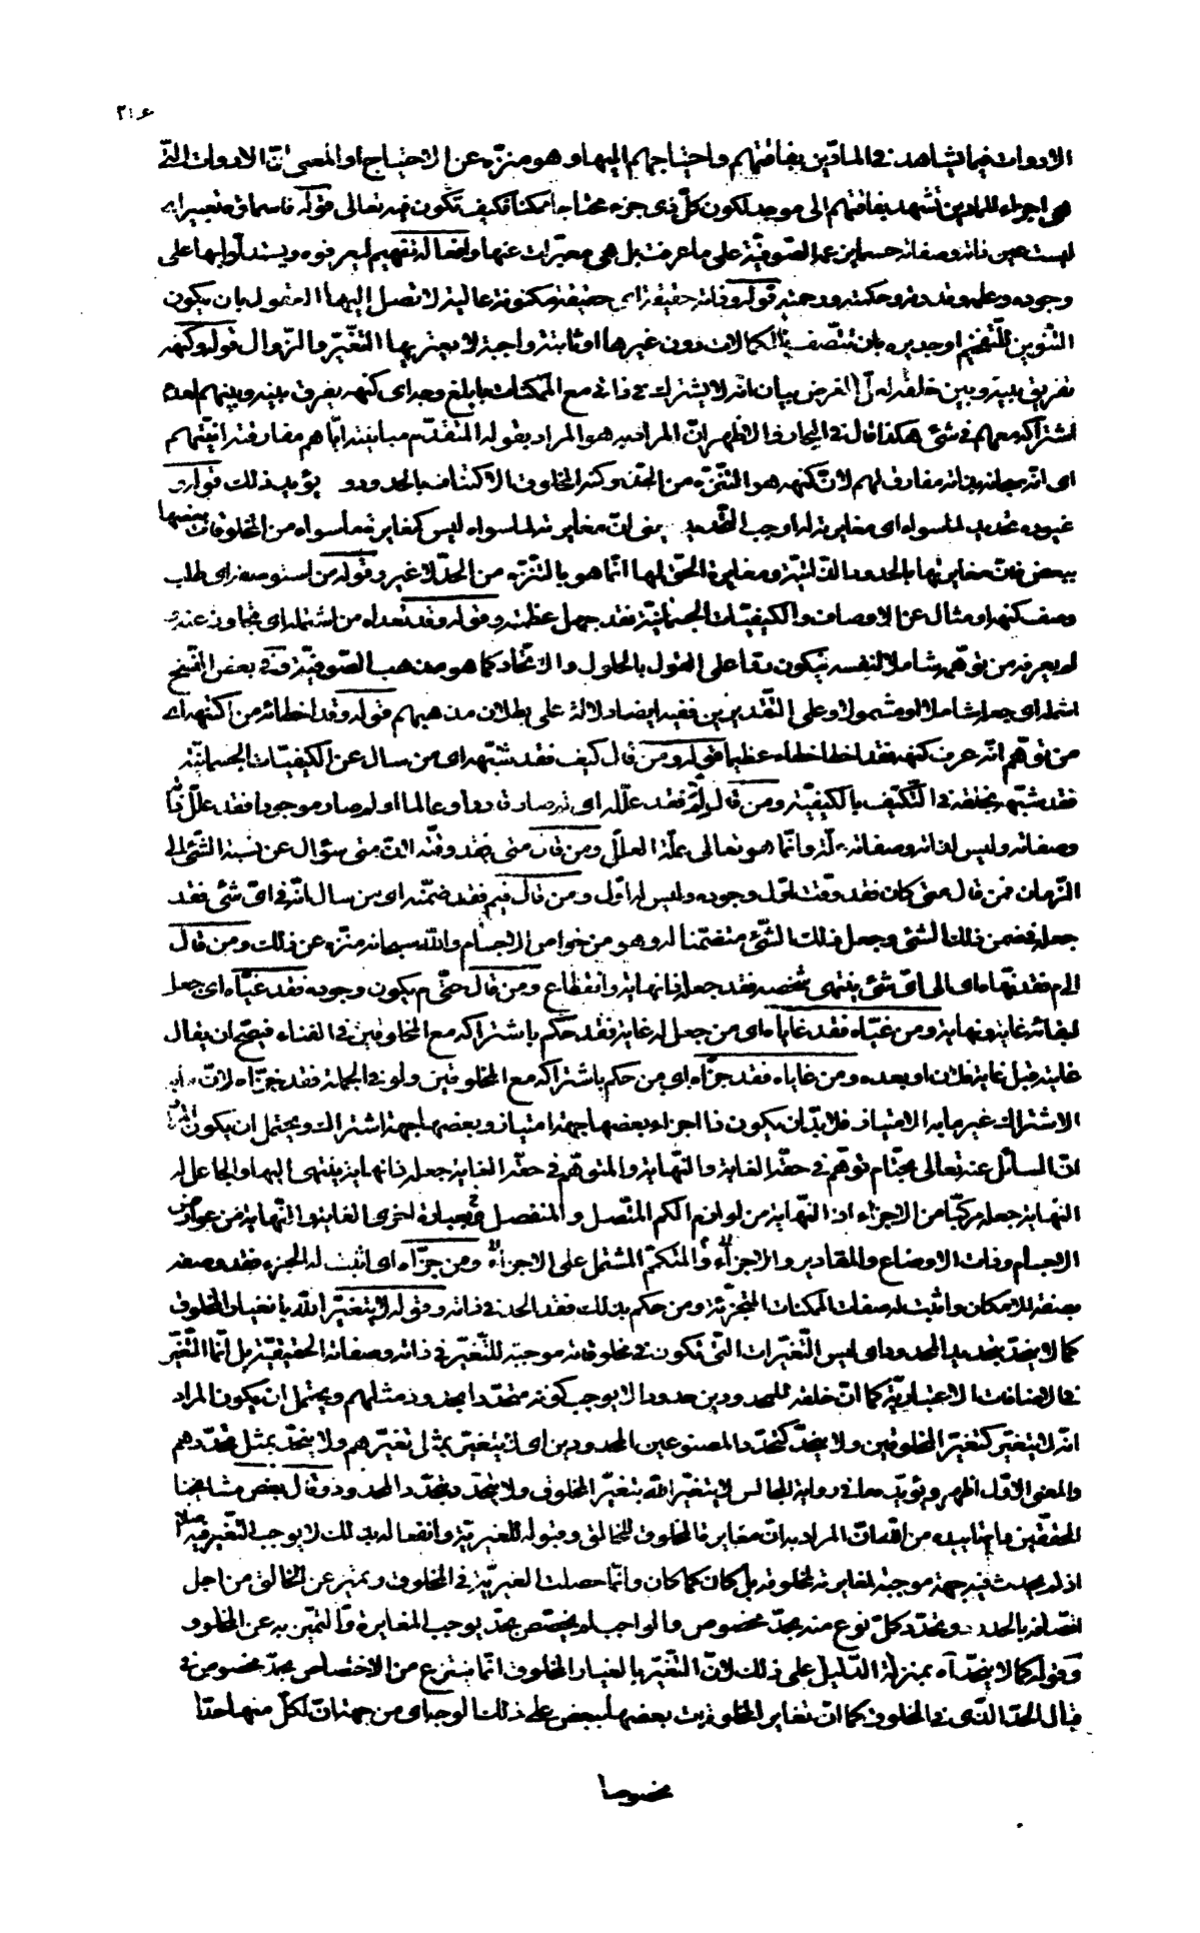 الادوات فيما يشاهد في المادّين بفاقتهم و احتياجهم اليها و هو منزّه عن الاحتياج او المعنى انّ الادوات التّى
هى اجزاء للمادّين تشهد بفاقتهم الى موجد لكون كلّ ذى جزء محتاجا ممكنا فكيف تكون فيه تعالى قوله فاسماؤه تعبير اى
ليست عين ذاته و صفاته حسما يزعمه الصّوفيّة على ما عرفت بل هى معبّرات عنها و افعاله تفهيم ليعرفوه و يستدلّوا بها على
وجوده و علمه و قدرته و حكمته و رحمته قوله و ذاته حقيقة اى حقيقة مكنونة عالية لا تصل اليها العقول بان يكون
التّنوين للتّفخيم او جديرة بان تتّصف بالكمالات دون غيرها او ثابتة واجبة لا يعتريها التّغيّر و الزّوال قوله و كنهه
تفريق بينه و بين خلقه لعلّ الغرض بيان انّه لا يشترك فى ذاتى مع الممكنات بابلغ وجه اى كنهه يفرق بينه و بينهم لعدم
اشتراكه معهم فى شئ هكذا قال فى البحار و الاظهر انّ المراد به هو المراد بقوله المتقدّم مباينته ايّاهم مفارقته انيّتهم
اى انّه سبحانه بذاته مفارق لهم لانّ كنهه هو التنزّه من الحدّ و كنه المخلوق الاكتناف بالحدود و يؤيد ذلك قوله و
غيوره تحديد لما سواه اى مغايرته لها اوجب التّحديد يعنى انّ مغايرته لما سواه ليس كمغايرة ما سواه من المخلوقات بعضها
ببعض فانّ مغايرتها بالحدود الذّاتيّة و مغايرة الحقّ لها انّما هو بالتنزّه من الحدّ لا غير و قوله من استوصفه اى طلب
وصف كنهه او مثال عن الاوصاف و الكيفيّات الجسمانيّة فقد جهل عظمته و قوله و قد تعدّاه من اشتمله اى تجاوز عنه و
لم يعرفه من توهّمه شاملا لنفسه فيكون ردّا على القول بالحلول و الاتّحاد كما هو مذهب الصّوفيّة و فى بعض النّسخ
اشمله اى جعله شاملا او مشمولا و على التّقديرين ففيه ايضا دلالة على بطلان مذهبهم قوله و قد اخطاه من اكتنهه اى
من توهّم انّه عرف كنهه فقد اخطا خطاء عظيما قوله و من قال كيف فقد شبّهه اى من سال عن الكيفيّات الجسمانيّة
فقد شبّهه بخلقه فى التّكيّف بالكيفيّة و من قال لم فقد علّله اى لم صار قادرا و عالما او لم صار موجودا فقد علّل ذاته
و صفاته و ليس لذاته و صفاته علّة و انّما هو تعالى علّة العلل و من قال متى فقد وقّته لانّ متى سؤال عن نسبة الشّئ الى
الزّمان فمن قال متى كان فقد وقّت اوّل وجوده و ليس له اوّل و من قال فيم فقد ضمّنه اى من سال انّه فى اىّ شئ فقد
جعله فى ضمن ذلك الشئ و جعل ذلك الشّئ متضمّنا له و هو من خواصّ الاجسام و اللّه سبحانه منزّه عن ذلك و من قال
الى م فقد نهّاه اى الى اىّ شئ ينتهى شخصه فقد جعل له نهاية و انقطاع و من قال حتّى م يكون وجوده فقد غيّاه اى جعل
لبقائه غاية و نهاية و من غيّاه فقد غاياه اى من جعل له غاية فقد حكم باشتراكه مع المخلوقين فى الفناء فيصحّ ان يقال
غايته قبل غاية فلان او بعده و من غاياه فقد جزّاه اى من حكم باشتراكه مع المخلوقين و لو فى الجملة فقد جزّاه لانّ ما به
الاشتراك غير ما به الامتياز فلا بدّ ان يكون ذا اجزاء بعضها جهة امتياز و بعضها جهة اشتراك و يحتمل ان يكون المراد
انّ السائل عنه تعالى بحتّام توهّم فى حقّه الغاية و النّهاية و المتوهّم فى حقّه الغاية جعله ذا نهاية ينتهى اليها و الجاعل له
النهاية جعله مركّبا من الاجزاء اذ النّهاية من لوازم الكم المتّصل و المنفصل و بعبارة اخرى الغاية و النّهاية من عوارض
الاجسام و ذات الاوضاع و المقادير و الاجزاء و المتكمّم المشتمل على الاجزاء و من جزّاه اى اثبت له الجزء فقد وصفه
بصفة الامكان و اثبت له صفات الممكنات المتجزّئة و من حكم بذلك فقد الحد فى ذاته و قوله لا يتغيّر اللّه بانغيار المخلوق
كما لا يتحدّ بتحديد المحدود اى ليس التّغيّرات التّى تكون فى مخلوقاته موجبة للتّغيّر فى ذاته و صفاته الحقيقيّة بل انّما التّغيّر
فى الاضافات الاعتباريّة كما انّ خلقه للمحدودين حدودا لا يوجب كونه متحدّدا بحدود مثلهم و يحتمل ان يكون المراد
انّه لا يتغيّر كتغيّر المخلوقين و لا يتحدّ كتحدّد المصنوعين المحدودين اى لا يتغيّر بمثل تغيّرهم و لا يتحدّ بمثل تحدّدهم
و المعنى الاوّل اظهر و يؤيّده ما فى رواية المجالس لا يتغيّر اللّه بتغيّر المخلوق و لا يتحدّد بتحدّد المحدود و قال بعض مشايخنا
المحقّقين ما يناسبه من انّ المراد به انّ مغايرة المخلوق للخالق و قبوله للغيريّة و انفعاله بذلك لا يوجب التّغيّر فيه اصلا
اذ لم يحدث فيه جهة موجبة لمغايرته لمخلوقه بل كان كما كان و انّما حصلت الغيريّة فى المخلوق و تميّز عن الخالق من اجل
اتّصافه بالحدّ و تحدّد كلّ نوع منه بحدّ مخصوص و الواجب لم يختصّ بحدّ يوجب المغايرة و التّميّز به عن المخلوق
و قوله كما لا يتحدّ آه بمنزلة الدّليل على ذلك لانّ التّغيّر بالغيار المخلوق انّما ينتزع من الاختصاص بحدّ مخصوص فى
قبال الحدّ الّذى فى المخلوق كما انّ تغاير المخلوقين بعضها لبعض على ذلك الوجه اى من جهة انّ لكلّ منها حدّا
مخصوصا